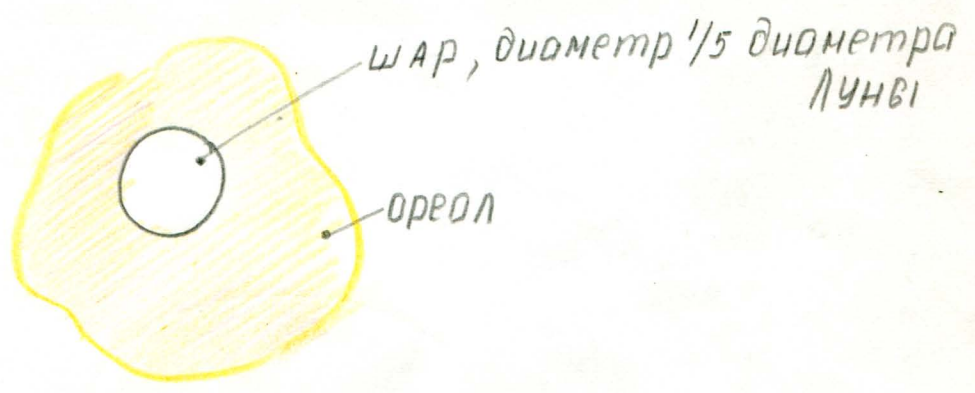 ШАР, диаметр 1/5 диаметра
ЛУНЫ
ореол